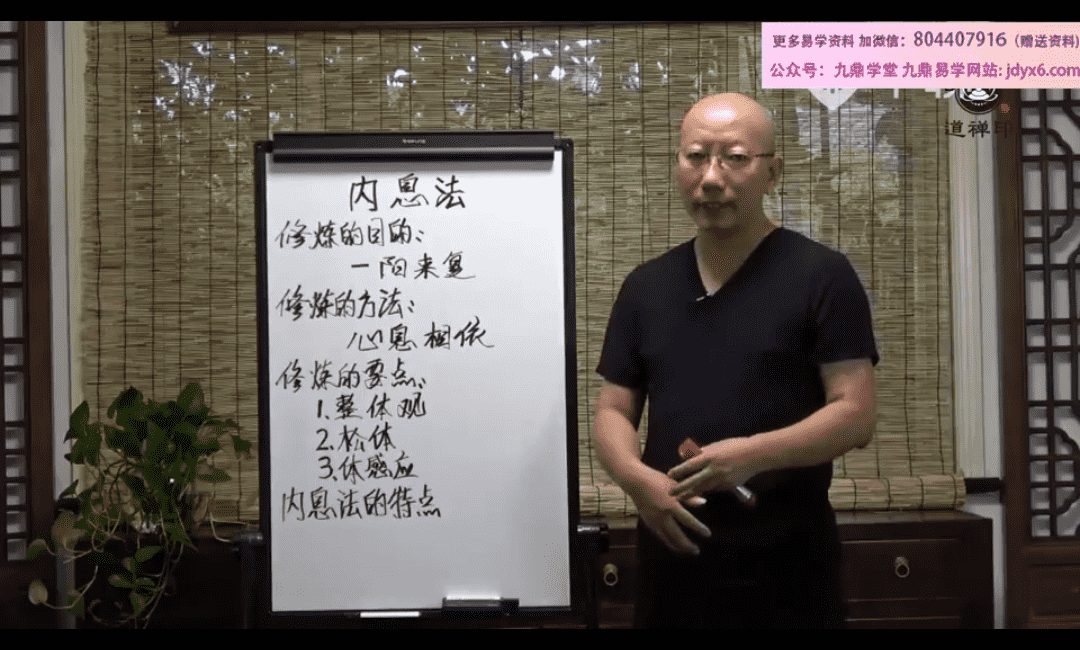 更多易学资料 加微信：804407916（赠送资料）
公众号：九鼎学堂 九鼎易学网站: jdyx6.com
道禅印
内息法
修炼的目的：
一阳来复
修炼的方法：
心息相依
修炼的要点：
1.整体观
2.松体
3.体感应
内息法的特点